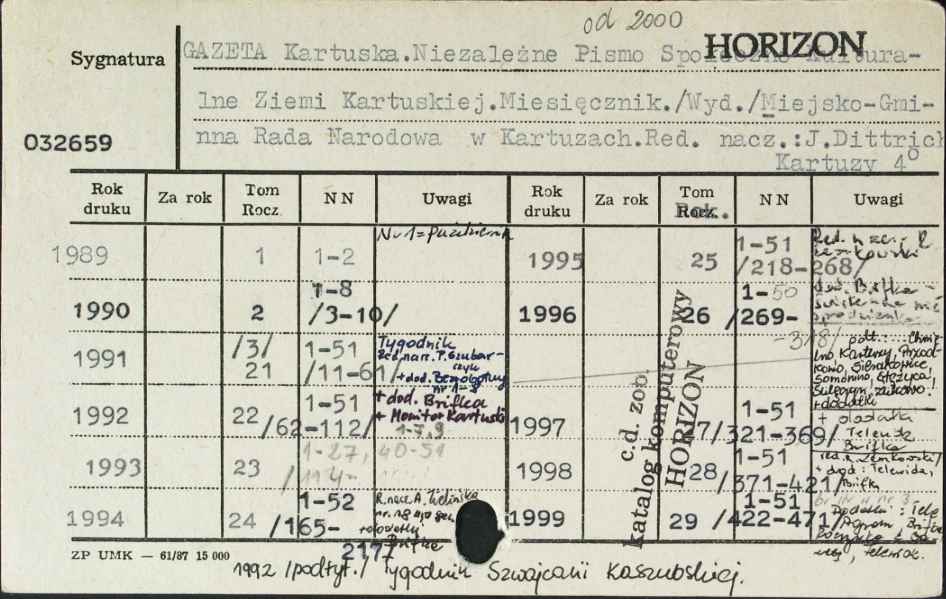 od 2000
HORIZON
Sygnatura
GAZETA Kartuska.Niezależne Pismo Społeczno-Kultura-
lne Ziemi Kartuskiej.Miesięcznik./Wyd./Miejsko-Gmi-
032659
nna Rada Narodowa w Kartuzach.Red. nacz.:J.Dittrich
Kartuzy 4°
Rok druku Za rok Tom Rocz. NN Uwagi Rok druku Za rok Tom Rocz. NN Uwagi
Nr 1 = październik
1989 1 1-2 1995 25 1-51 /218-268/ Red. nacz.:
1990 2 1-8 /3-10/ 1996 26 1-50 /269-318/ dod. Bifka
1991 /3/ 21 1-51 /11-61/ Tygodnik
Red. nacz. P.
+ dod. Bezrobotny nr 1-3
1992 22 1-51 /62-112/ + dod. Brifka
+ Monitor Kartuski
1-7,9
Kartuzy,
Somonino, Stężyca,
Sulęczyno, Żukowo.
+ dodatki
1997 27 1-51 /321-369/ + dodatki
Brifka
1993 23 1-27, 40-51 /114- 1998 28 1-51 /371-421/ red.
+ dod.: Telewidz,
Bifka
1994 24 1-52 /165-217/ R. nacz. A.
+ dodatki
Brifka
1999 29 1-51 /422-471/ Dodatki: Tele
Brifka
c.d. zob.
katalog komputerowy
HORIZON
ZP UMK — 61/87 15 000
1992 /podtyt./ Tygodnik Szwajcarii Kaszubskiej.